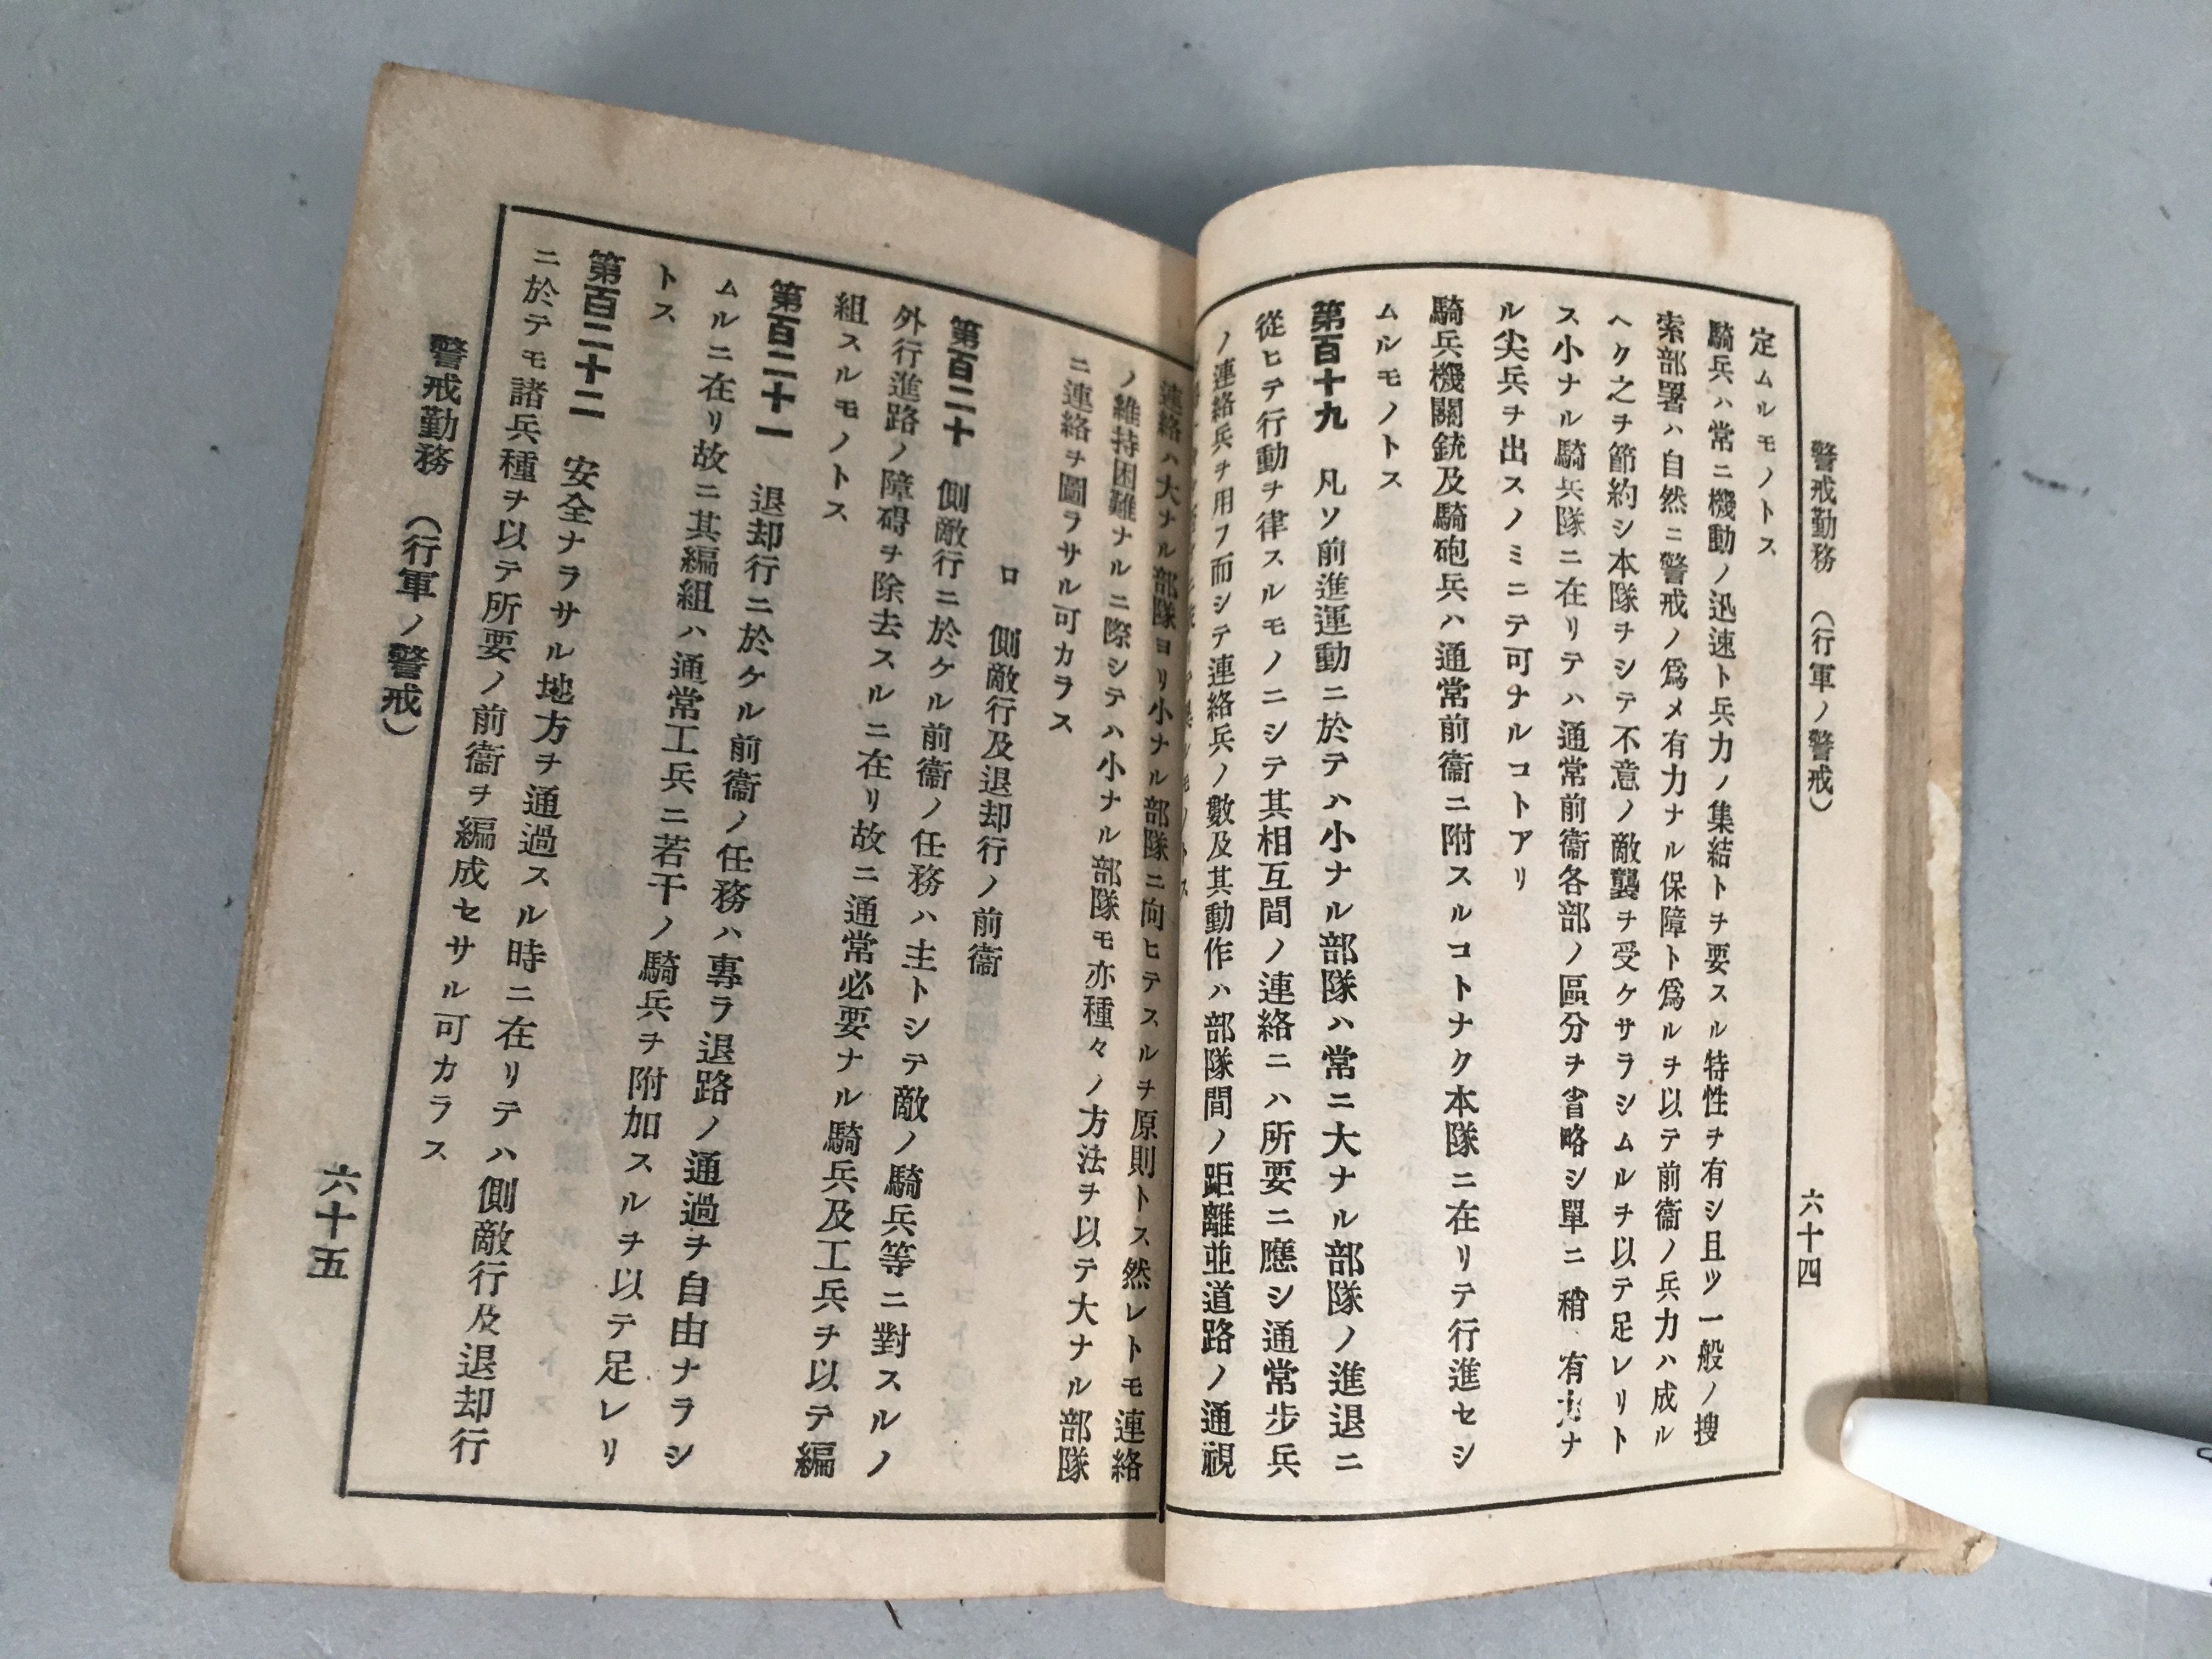 警戒勤務　（行軍ノ警戒）　六十四
定ムルモノトス
騎兵ハ常ニ機動ノ迅速ト兵力ノ集結トヲ要スル特性ヲ有シ且ツ一般ノ搜
索部署ハ自然ニ警戒ノ爲メ有力ナル保障ト爲ルヲ以テ前衞ノ兵力ハ成ル
ヘク之ヲ節約シ本隊ヲシテ不意ノ敵襲ヲ受ケサラシムルヲ以テ足レリト
ス小ナル騎兵隊ニ在リテハ通常前衞各部ノ區分ヲ省略シ單ニ稍有力ナ
ル尖兵ヲ出スノミニテ可ナルコトアリ
騎兵機關銃及騎砲兵ハ通常前衞ニ附スルコトナク本隊ニ在リテ行進セシ
ムルモノトス
第百十九　凡ソ前進運動ニ於テハ小ナル部隊ハ常ニ大ナル部隊ノ進退ニ
從ヒテ行動ヲ律スルモノニシテ其相互間ノ連絡ニハ所要ニ應シ通常步兵
ノ連絡兵ヲ用フ而シテ連絡兵ノ數及其動作ハ部隊間ノ距離並道路ノ通視
連絡ハ大ナル部隊ヨリ小ナル部隊ニ向ヒテスルヲ原則トス然レトモ連絡
ノ維持困難ナルニ際シテハ小ナル部隊モ亦種々ノ方法ヲ以テ大ナル部隊
ニ連絡ヲ圖ラサル可カラス
ロ　側敵行及退却行ノ前衞
第百二十　側敵行ニ於ケル前衞ノ任務ハ主トシテ敵ノ騎兵等ニ對スルノ
外行進路ノ障碍ヲ除去スルニ在リ故ニ通常必要ナル騎兵及工兵ヲ以テ編
組スルモノトス
第百二十一　退却行ニ於ケル前衞ノ任務ハ專ラ退路ノ通過ヲ自由ナラシ
ムルニ在リ故ニ其編組ハ通常工兵ニ若干ノ騎兵ヲ附加スルヲ以テ足レリ
トス
第百二十二　安全ナラサル地方ヲ通過スル時ニ在リテハ側敵行及退却行
ニ於テモ諸兵種ヲ以テ所要ノ前衞ヲ編成セサル可カラス
警戒勤務　（行軍ノ警戒）　六十五